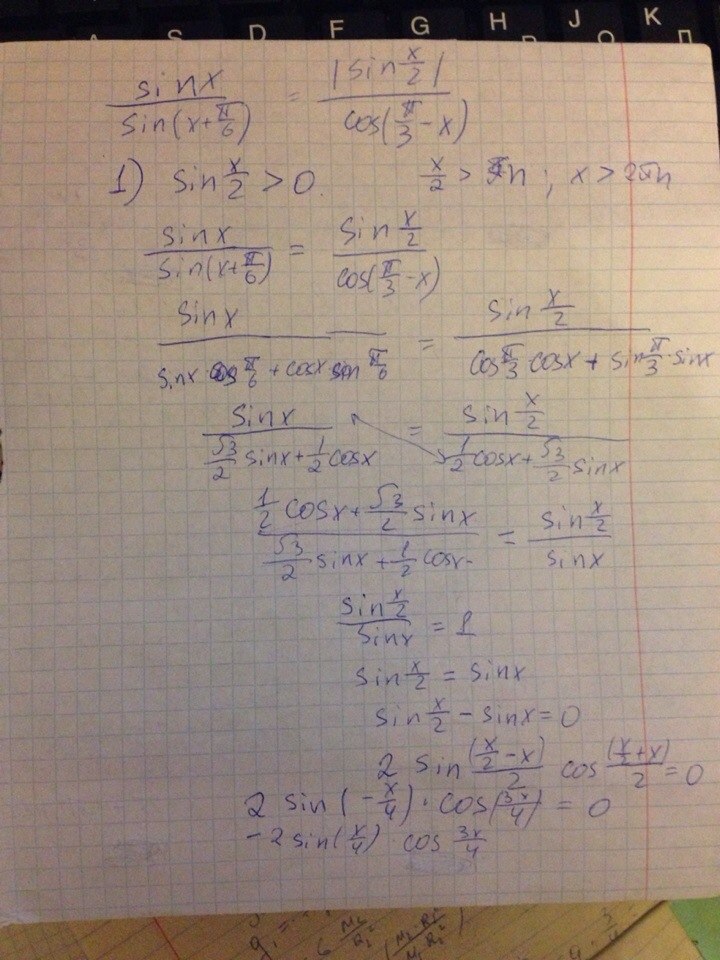 A S D F G H J K
О Л
sinx / sin(x+π/6) = |sin x/2| / cos(π/3 - x)
1) sin x/2 > 0. x/2 > πn ; x > 2πn
sinx / sin(x+π/6) = sin x/2 / cos(π/3 - x)
sinx / sinx cos π/6 + cosx sin π/6 = sin x/2 / cos π/3 · cosx + sin π/3 · sinx
sinx / √3/2 sinx + 1/2 cosx = sin x/2 / 1/2 cosx + √3/2 sinx
1/2 cosx + √3/2 sinx / √3/2 sinx + 1/2 cosx = sin x/2 / sinx
sin x/2 / sinx = 1
sin x/2 = sinx
sin x/2 - sinx = 0
2 sin (x/2 - x)/2 cos (x/2 + x)/2 = 0
2 sin(-x/4) · cos(3x/4) = 0
-2 sin(x/4) cos 3x/4